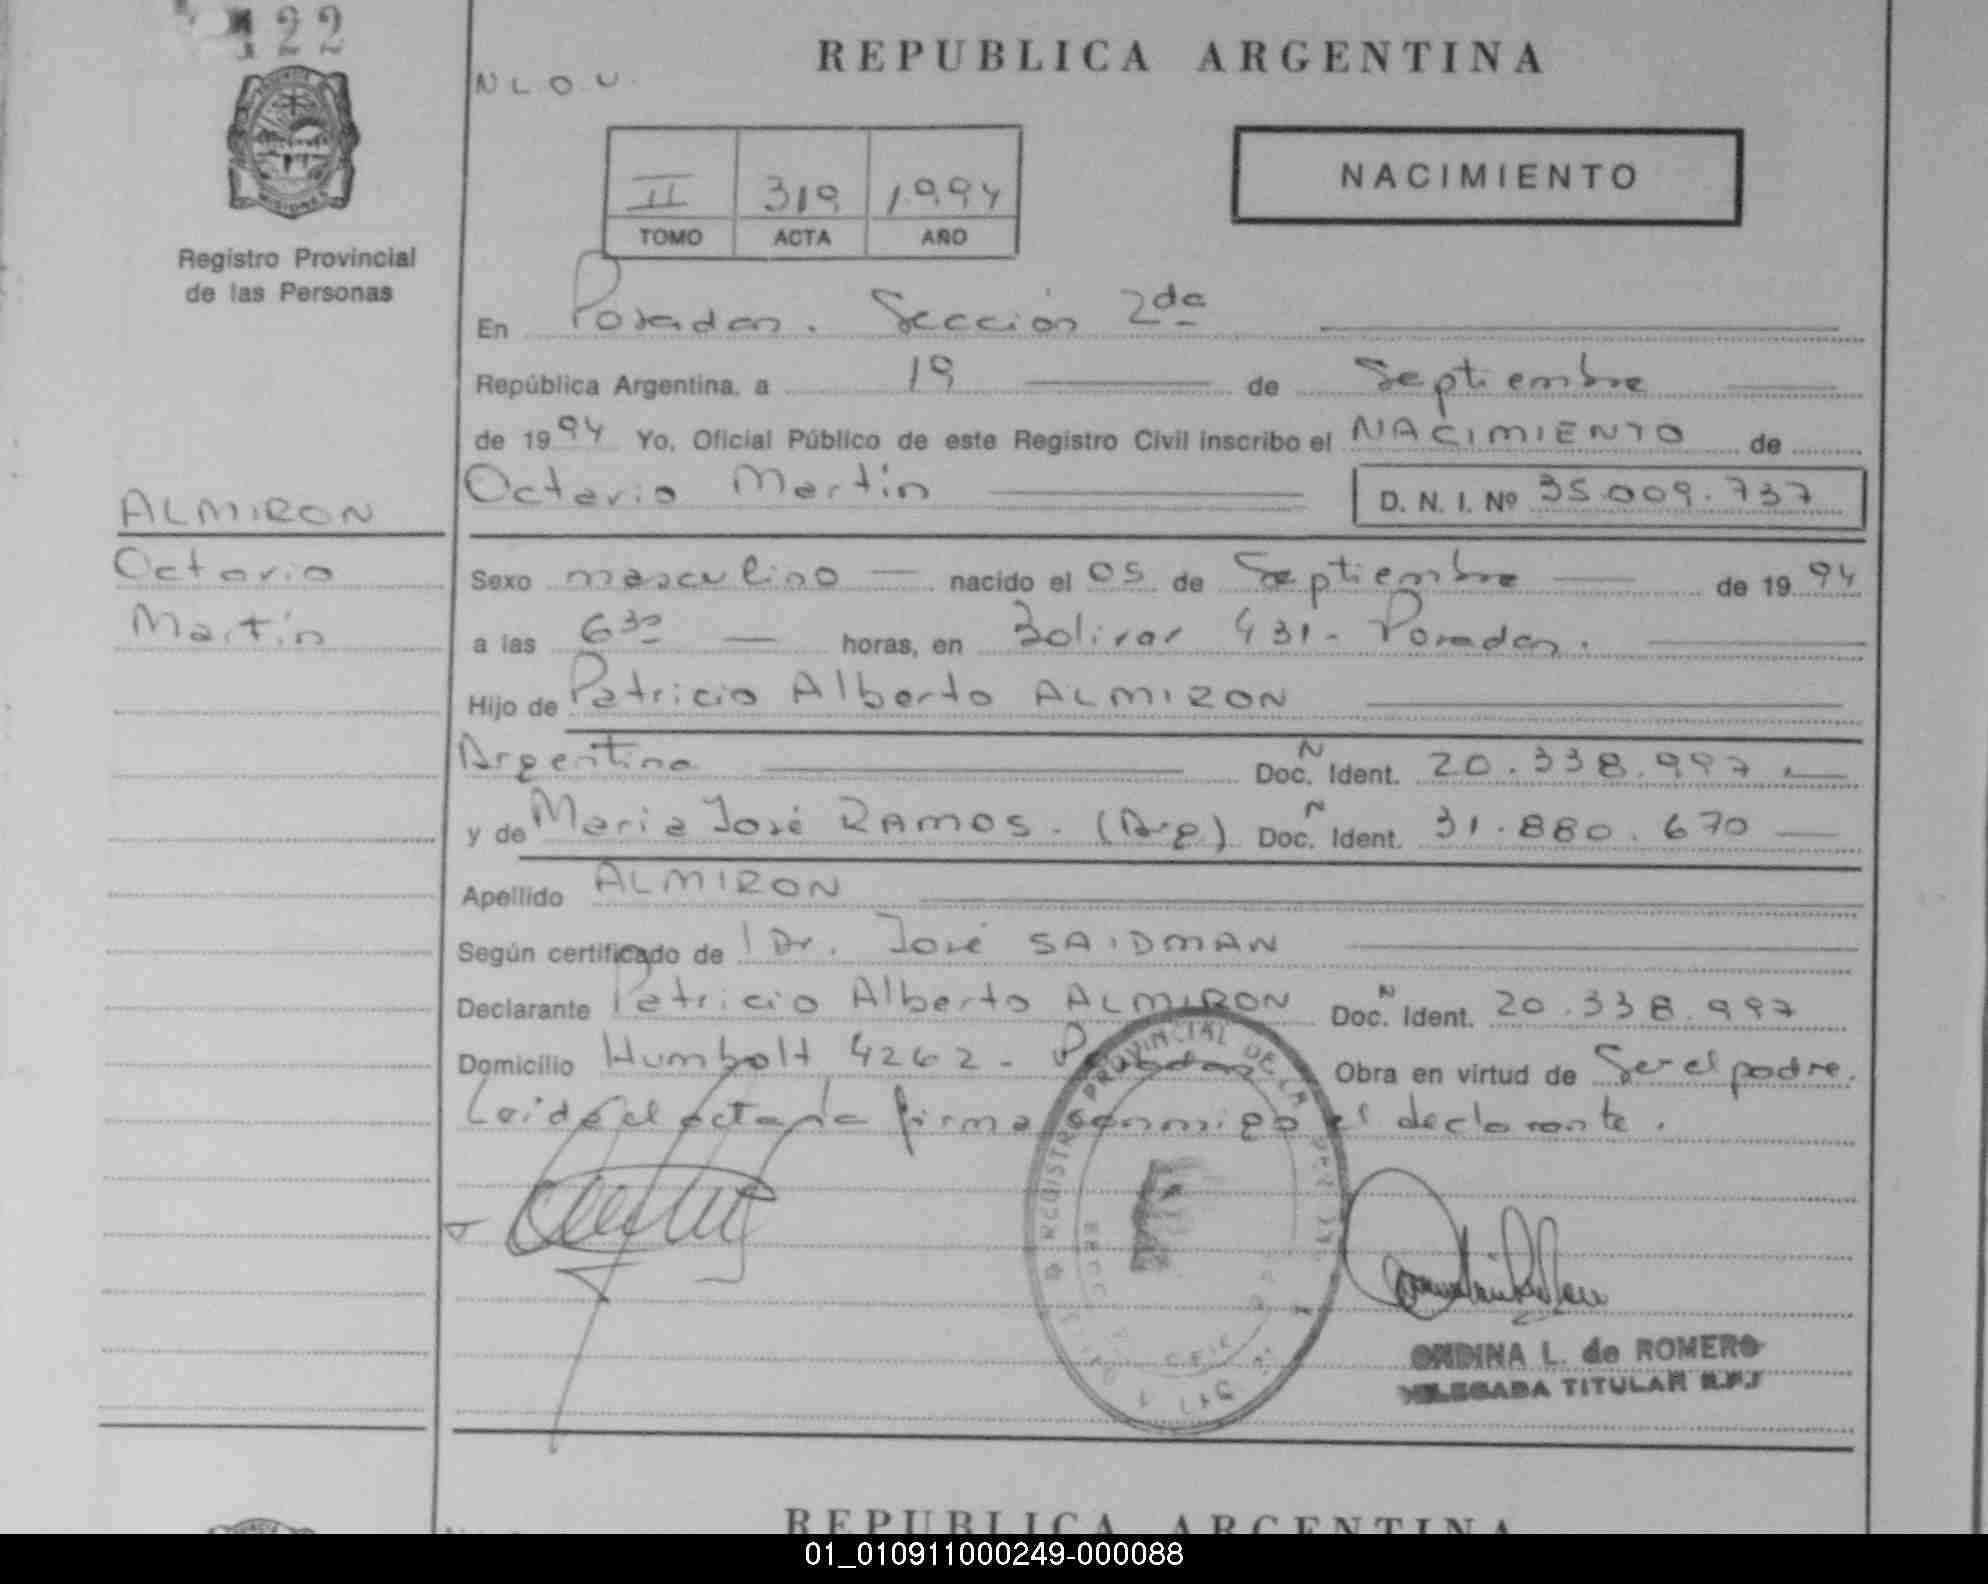 122
REPUBLICA ARGENTINA
N L O U.
NACIMIENTO
II 319 1994
TOMO ACTA AÑO
MISIONES
Registro Provincial
de las Personas
En Posadas. Sección 2da
República Argentina, a 19 de Septiembre
de 1994 Yo, Oficial Público de este Registro Civil inscribo el NACIMIENTO de
Octavio Martín D. N. I. Nº 35.009.737
ALMIRON
Octavio
Martín
Sexo masculino nacido el 05 de Septiembre de 1994
a las 6 30 horas, en Bolivar 431 - Posadas.
Hijo de Patricio Alberto ALMIRON
Argentina Doc. N Ident. 20.338.997
y de Maria José RAMOS. (Arg) Doc. N Ident. 31.880.670
Apellido ALMIRON
Según certificado de Dr. José SAIDMAN
Declarante Patricio Alberto ALMIRON Doc. N Ident. 20.338.997
Domicilio Humbolt 4262 - Posadas Obra en virtud de Ser el padre.
Leida el acta la firma conmigo el declarante.
REGISTRO PROVINCIAL DE LA
ONDINA L. de ROMERO
DELEGADA TITULAR R.P.J
REPUBLICA ARGENTINA
01_010911000249-000088